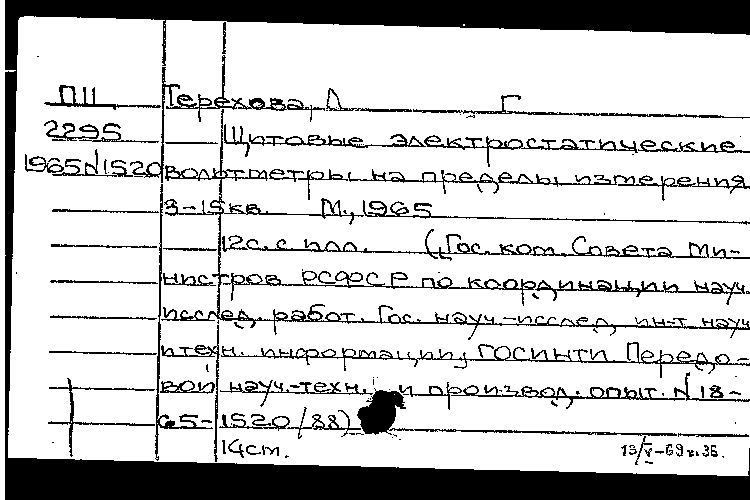 ПII Терехова, Л Г
2295 Щитовые электростатические
1965 N1520 вольтметры на пределы измерения
3-15кв. М., 1965
12с. с илл. (Гос. ком. Совета Ми-
нистров РСФСР по координации науч.
исслед. работ. Гос. науч.-исслед. ин-т науч
и техн. информации, ГОСИНТИ Передо-
вой науч.-техн. и производ. опыт. N 18-
65-1520/88)
14см.
13/V-69